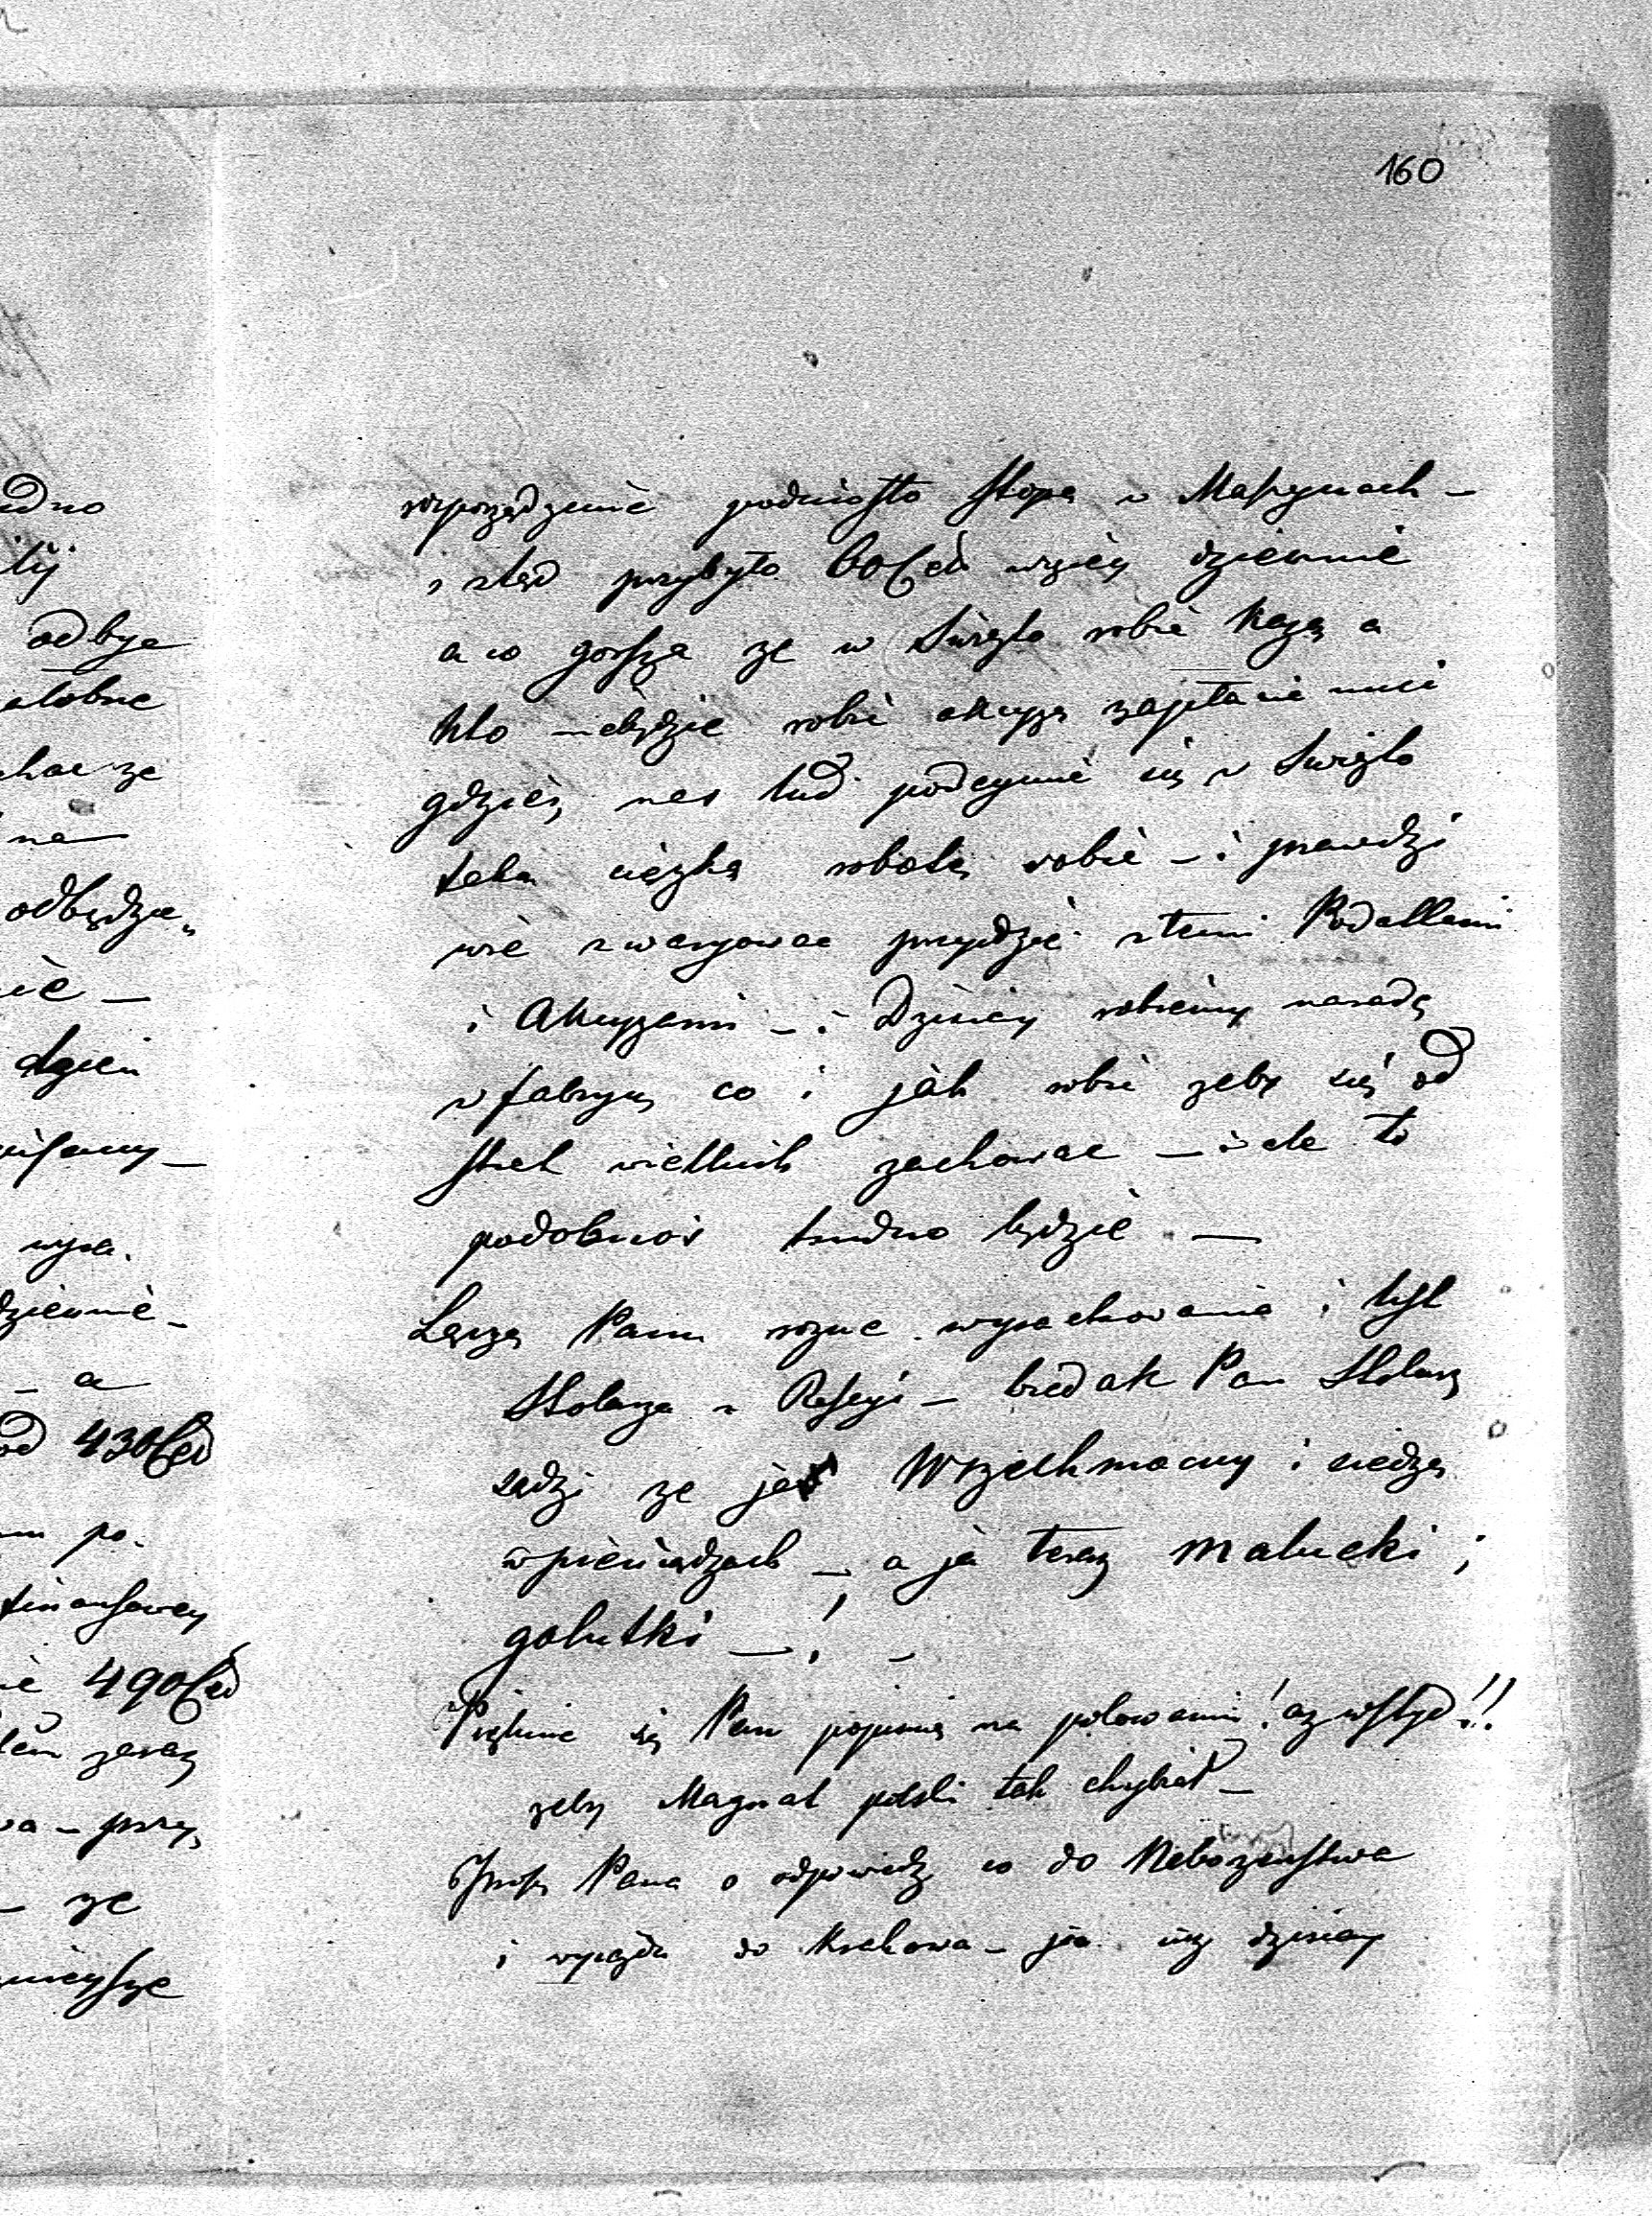 160
rozporządzenie podniosło stopę w Maszynach –
i stąd przybyło 60 Ctů więcy dziennie
a co gorsza ze w Święto robić Każą a
kto niebędzie robić akcyzę zapłacić musi
gdzieś nas lud podeymie się w Święto
taką ciężką robotę robić – i prawdzi
wie zwaryowac przydzie z temi Podatkami
i Akcyzami – i Dzisiay robiemy naradę
w fabryce co i jak robić zeby się od
strat wielkich zachowac – ale to
podobnoś trudno będzie –
Łączę Panu rozne wyrachowania i list
Stolarza z Rossyi – biedak Pan Stolarz
sądzi ze ja Wszechmocny i siedzę
w pieniądzach – a ja teraz malucki i
golutki – ! –
Pięknie się Pan popisuie na polowaniu! az wstyd!!
zeby Magnat polski tak chybiał –
Proszę Pana o odpowiedz co do Nabozenstwa
i wyiazdu do Krakowa – ja iuz dzisiay
udno
odbye
załobne
chac ze
na
odbędzie
ie –
dzien
wysa.
dziennie –
– a
od 430 Ctů
po.
finansowey
ie 490 Ctů
zaraz
– przy,
– ze